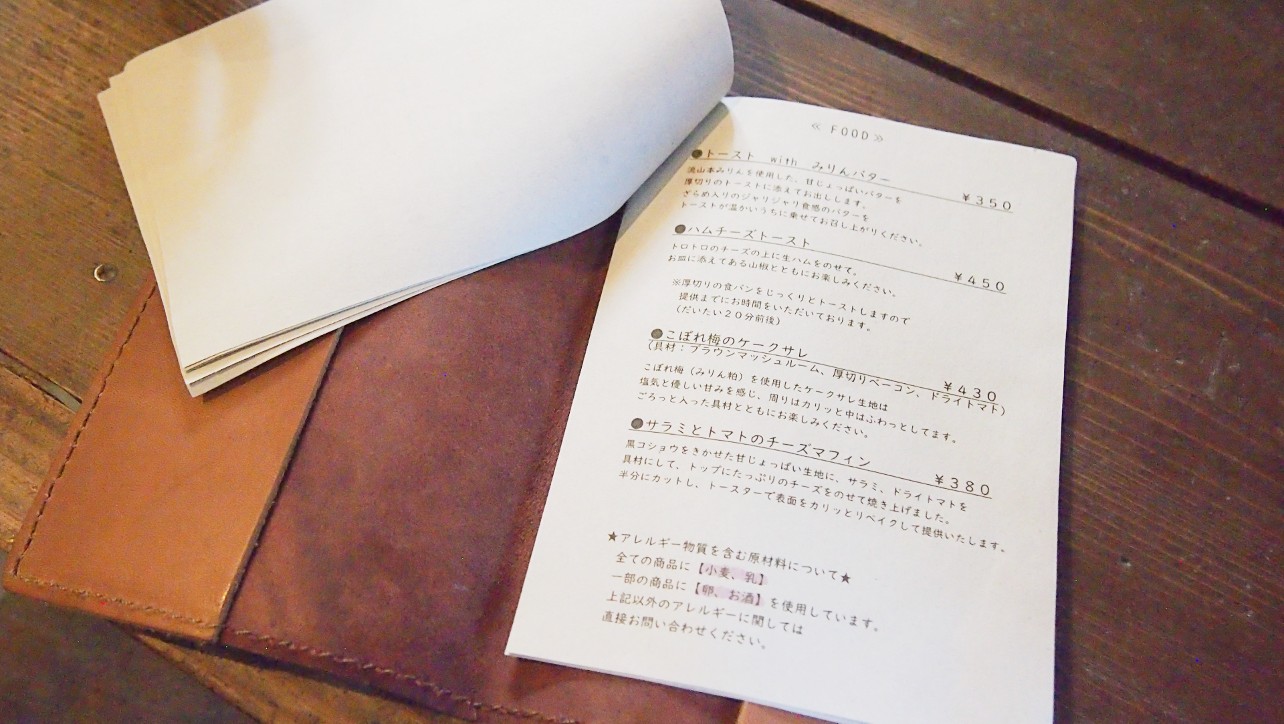 ≪ FOOD ≫
●トースト with みりんバター ¥350
流山本みりんを使用した、甘じょっぱいバターを
厚切りのトーストに添えてお出しします。
ざらめ入りのジャリジャリ食感のバターを
トーストが温かいうちに乗せてお召し上がりください。
●ハムチーズトースト ¥450
トロトロのチーズの上に生ハムをのせて。
お皿に添えてある山椒とともにお楽しみください。
※厚切りの食パンをじっくりとトーストしますので
提供までにお時間をいただいております。
(だいたい20分前後)
●こぼれ梅のケークサレ ¥430
(具材:ブラウンマッシュルーム、厚切りベーコン、ドライトマト)
こぼれ梅(みりん粕)を使用したケークサレ生地は
塩気と優しい甘みを感じ、周りはカリッと中はふわっとしてます。
ごろっと入った具材とともにお楽しみください。
●サラミとトマトのチーズマフィン ¥380
黒コショウをきかせた甘じょっぱい生地に、サラミ、ドライトマトを
具材にして、トップにたっぷりのチーズをのせて焼き上げました。
半分にカットし、トースターで表面をカリッとリベイクして提供いたします。
★アレルギー物質を含む原材料について★
全ての商品に【小麦、乳】
一部の商品に【卵、お酒】を使用しています。
上記以外のアレルギーに関しては
直接お問い合わせください。